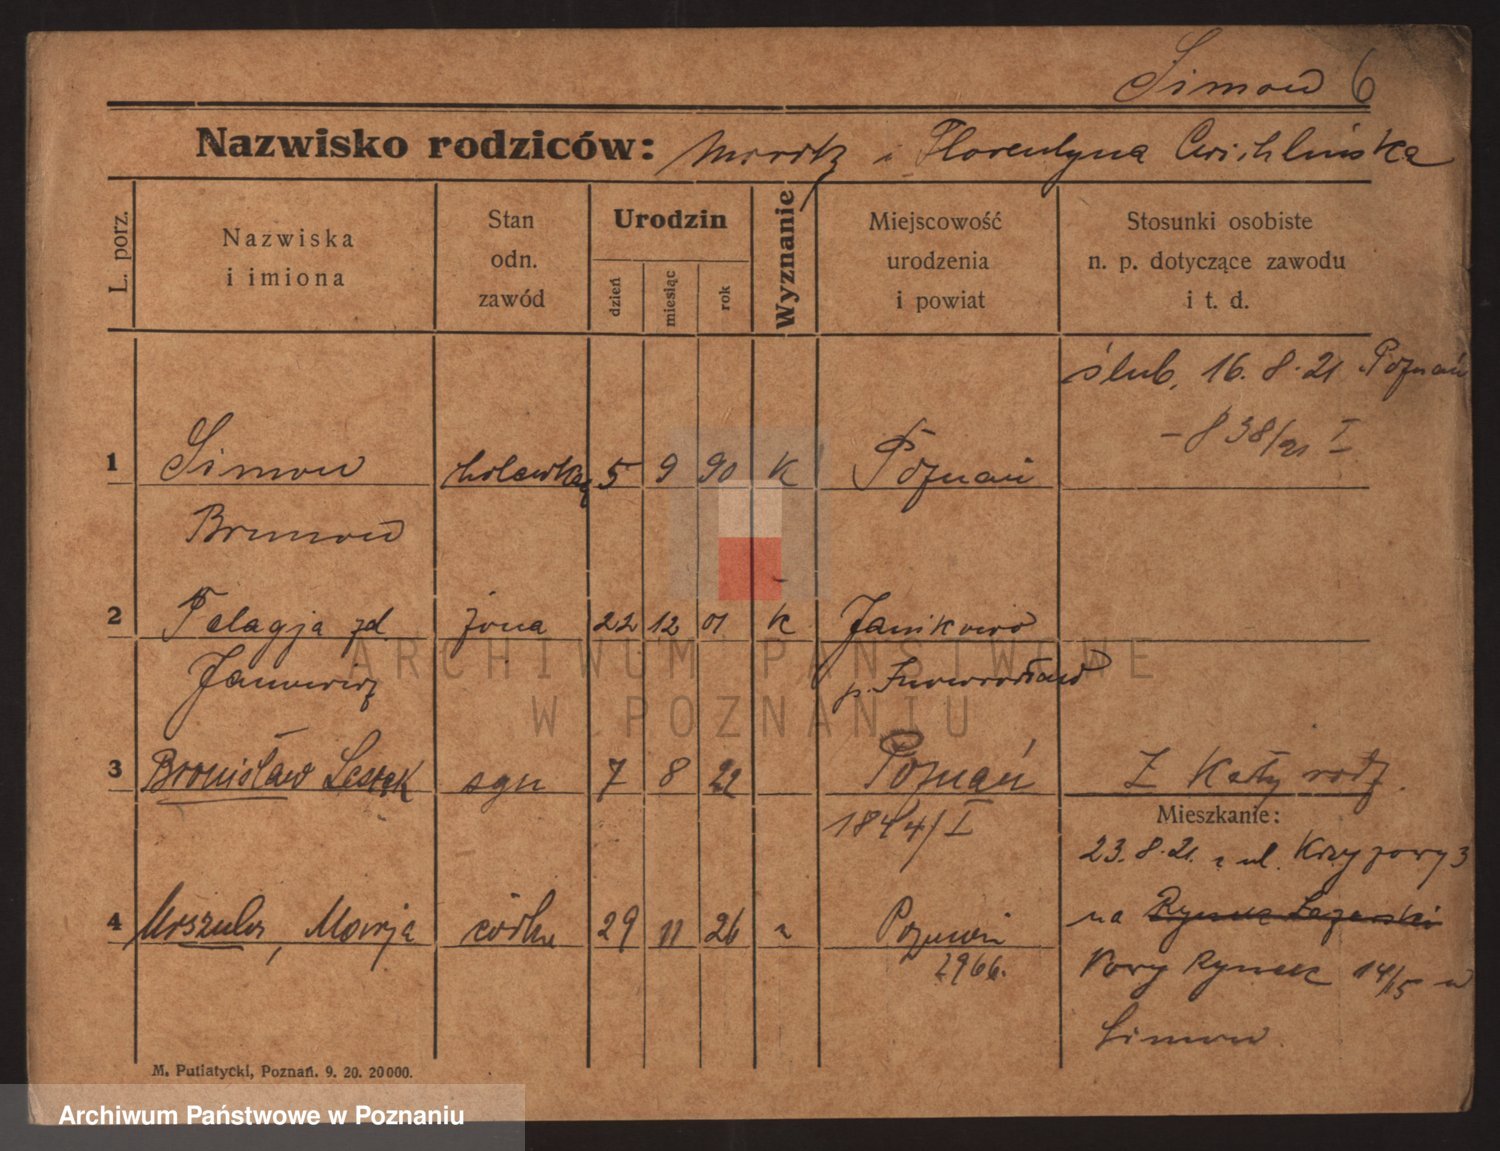 Simon 6
Nazwisko rodziców: i Florentyna Cwichlińska
L. porz.
Nazwiska
i imiona
Stan
odn.
zawód
Urodzin
dzień
miesiąc
rok
Wyznanie
Miejscowość
urodzenia
i powiat
Stosunki osobiste
n. p. dotyczące zawodu
i t. d.
ślub, 16. 8. 21 Poznań
- 838/21 I
1 Simon 5 9 90 K Poznań
Brunon
2 Pelagja zd żona 22 12 01 K Janikowo
p. Inowrocław
3 Bronisław Leszek syn 7 8 22 Poznań
1844/I
Mieszkanie:
23. 8. 21. z ul. Krzyżowy 3
4 Urszula, Marja córka 29 11 26 Poznań
2966.
na Rynek Łazarski
Rynek 14/15 u
Simon
M. Putiatycki, Poznań. 9. 20. 20000.
ARCHIWUM PAŃSTWOWE
W POZNANIU
Archiwum Państwowe w Poznaniu